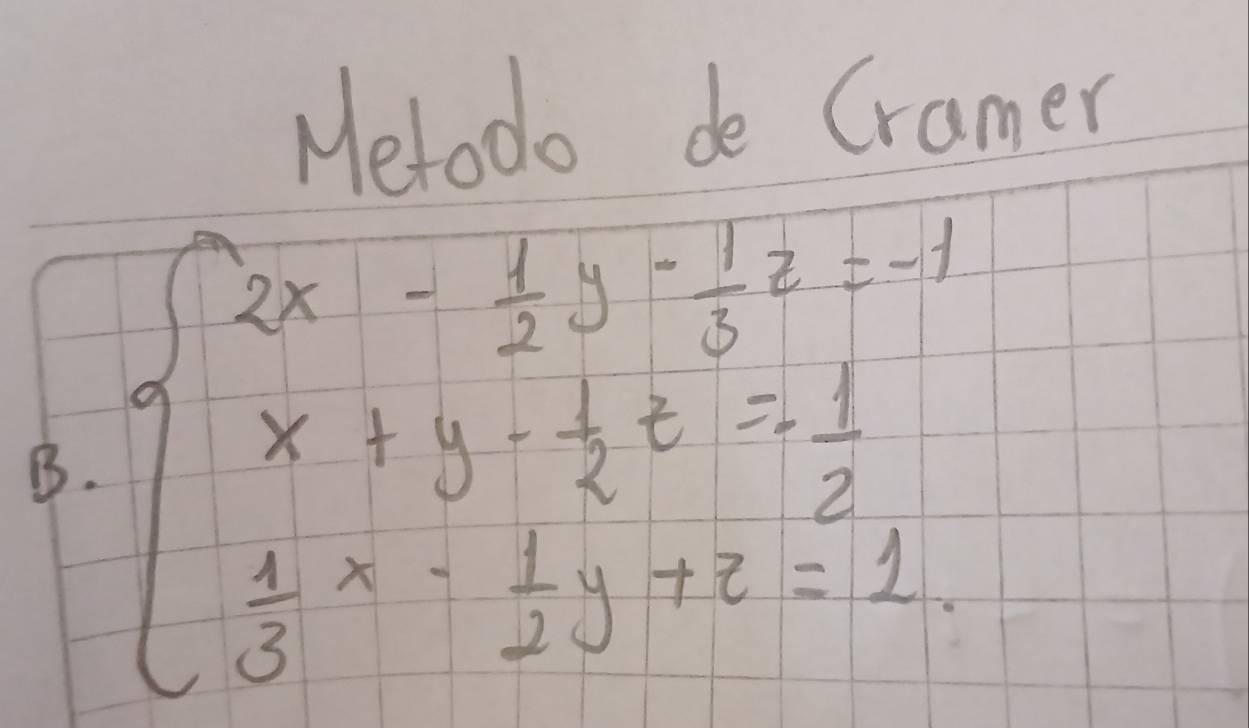 Metodo de Cramer
2x - 1/2 y - 1/3 z = -1
B. x + y - 1/2 z = - 1/2
1/3 x - 1/2 y + z = 1.